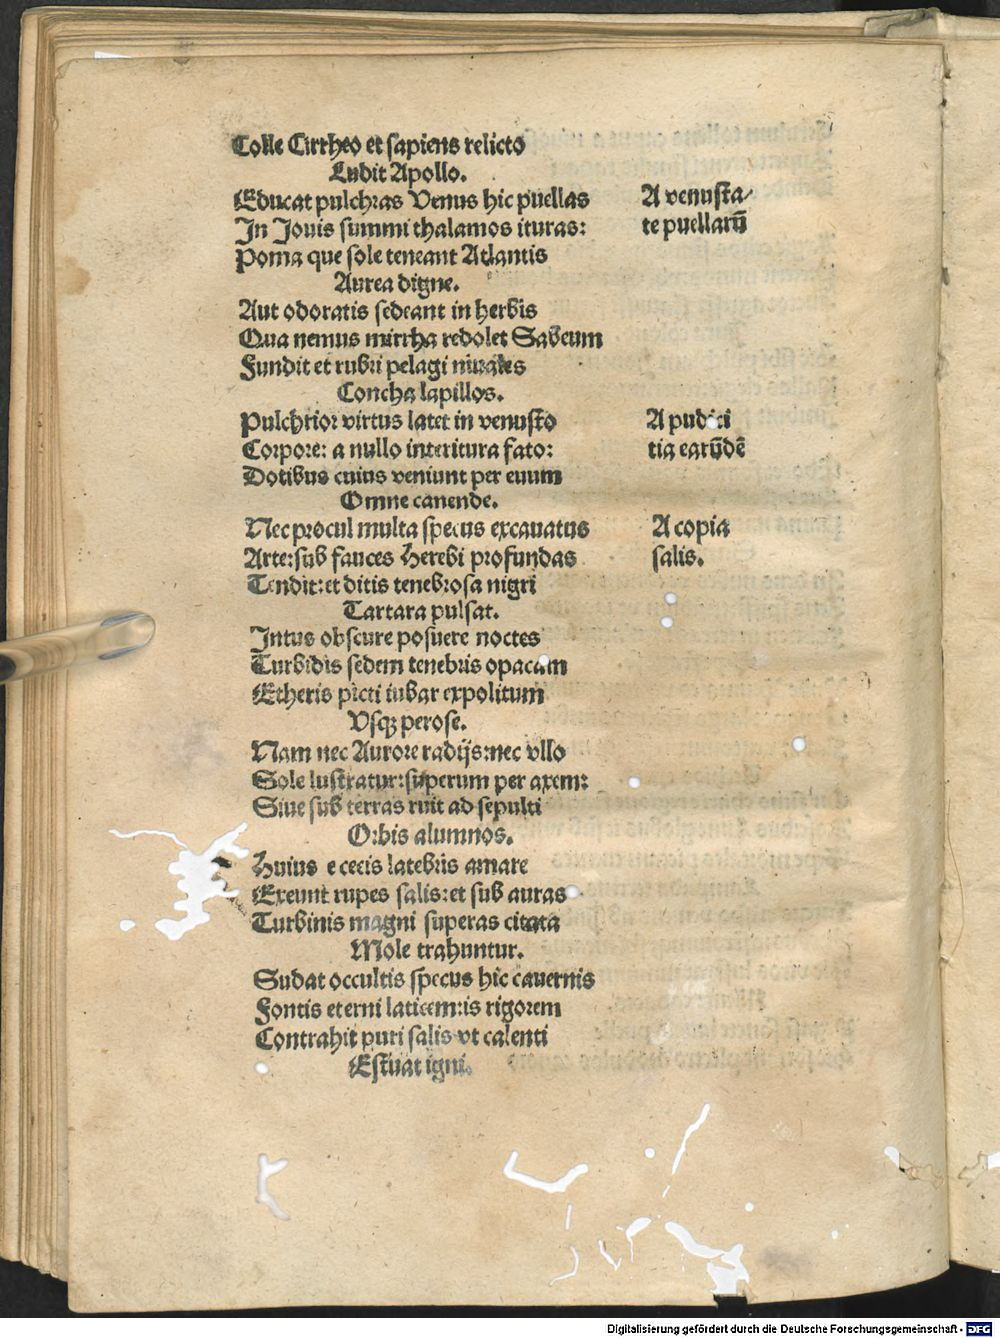 Colle Cirrheo et sapiens relicto
Ludit Apollo.
Educat pulchras Venus hic puellas
A venusta-
In Jouis summi thalamos ituras:
te puellarū
Poma que sole teneant Atlantis
Aurea digne.
Aut odoratis sedeant in herbis
Qua nemus mirrha redolet Sabeum
Fundit et rubri pelagi niuales
Concha lapillos.
Pulchrior virtus latet in venusto
A pudici
Corpore: a nullo interitura fato:
tia earūdē
Dotibus cuius veniunt per euum
Omne canende.
Nec procul multa specus excauatus
A copia
Arte: sub fauces Herebi profundas
salis.
Tendit: et ditis tenebrosa nigri
Tartara pulsat.
Intus obscure posuere noctes
Turbidis sedem tenebris opacam
Etheris picti iubar expolitum
Usqꝫ perose.
Nam nec Aurore radijs: nec vllo
Sole lustratur: superum per axem:
Siue sub terras ruit ad sepulti
Orbis alumnos.
Huius e cecis latebris amare
Exeunt rupes salis: et sub auras
Turbinis magni superas citata
Mole trahuntur.
Sudat occultis specus hic cauernis
Fontis eterni laticem: is rigorem
Contrahit puri salis vt calenti
Estuat igni.
Digitalisierung gefördert durch die Deutsche Forschungsgemeinschaft - DFG